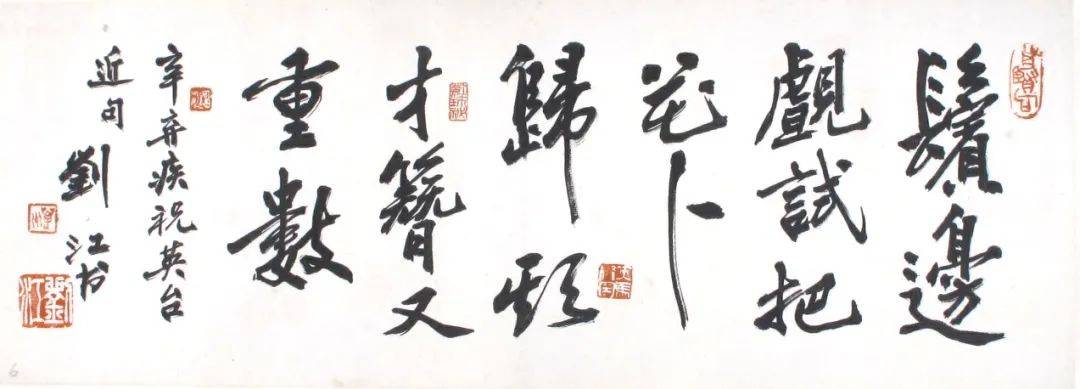 鬢邊
覷試把
花卜
歸期
才簪又
重數
辛弃疾祝英台
近句 劉江书